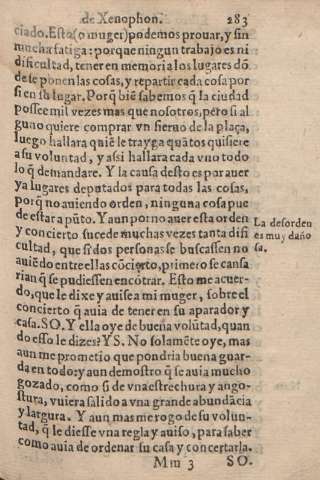 de Xenophon. 283
ciado. Esto (o muger) podemos prouar, y sin
mucha fatiga: porque ningun trabajo es ni
dificultad, tener en memoria los lugares dõ
de se ponen las cosas, y repartir cada cosa por
si en su lugar. Porq̃ biẽ sabemos q̃ la ciudad
possee mil vezes mas que nosotros, pero si al
guno quiere comprar vn sieruo de la plaça,
luego hallara quiẽ le trayga quãtos quisiere
a su voluntad, y assi hallara cada vno todo
lo q̃ demandare. Y la causa desto es por auer
ya lugares deputados para todas las cosas,
porq̃ no auiendo orden, ninguna cosa pue
de estar a pũto. Y aun por no auer esta orden
y concierto sucede muchas vezes tanta difi
cultad, que si dos personas se buscassen no
auiẽdo entre ellas cõcierto, primero se cansa
rian q̃ se pudiessen encõtrar. Esto me acuer-
do, que le dixe y auise a mi muger, sobre el
concierto q̃ auia de tener en su aparador y
casa. SO. Y ella oye de buena volũtad, quan
do esso le dizes? YS. No solamẽte oye, mas
aun me prometio que pondria buena guar-
da en todo: y aun demostro q̃ se auia mucho
gozado, como si de vna estrechura y ango-
stura, vuiera salido a vna grande abundãcia
y largura. Y aun mas me rogo de su volun-
tad, q̃ le diesse vna regla y auiso, para saber
como auia de ordenar su casa y concertarla.
Mm 3 SO.
La desorden
es muy daño
sa.